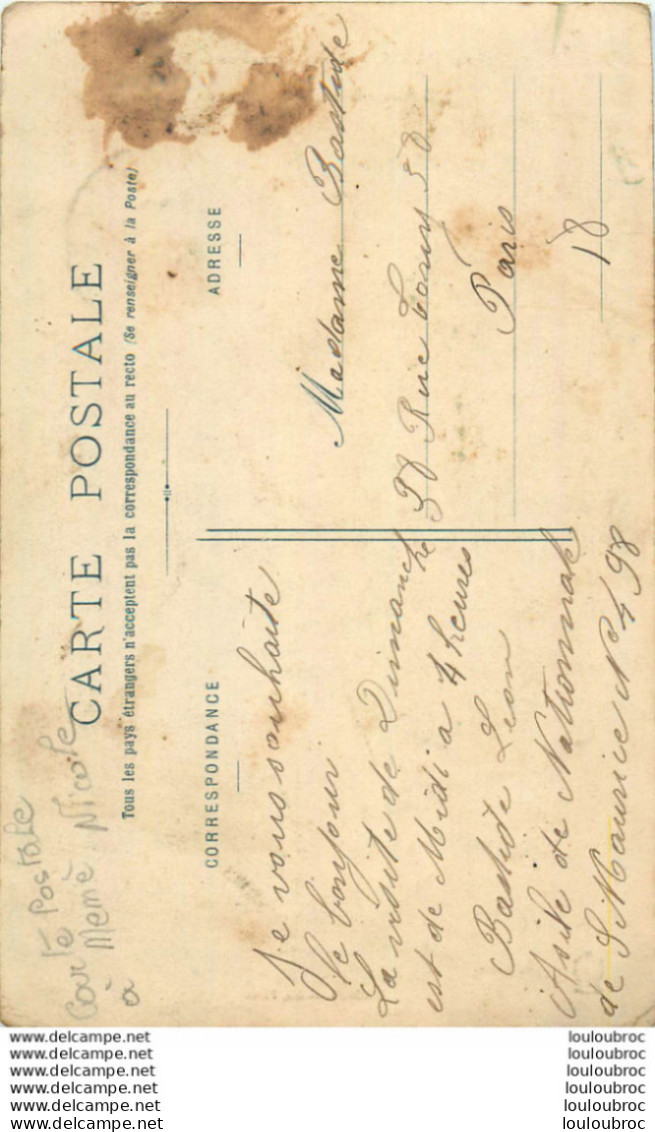 Carte Postale
à Memé Nicole
CARTE POSTALE
Tous les pays étrangers n'acceptent pas la correspondance au recto (Se renseigner à la Poste)
CORRESPONDANCE
Je vous souhaite
le bonjour
La visite de Dimanche
est de Midi a 4 heures
Bastide Leon
Asile de Nationnal
de St Maurice N° 498
ADRESSE
Madame Bastide
Rue
Paris
18
www.delcampe.net
www.delcampe.net
www.delcampe.net
www.delcampe.net
www.delcampe.net
www.delcampe.net
louloubroc
louloubroc
louloubroc
louloubroc
louloubroc
louloubroc